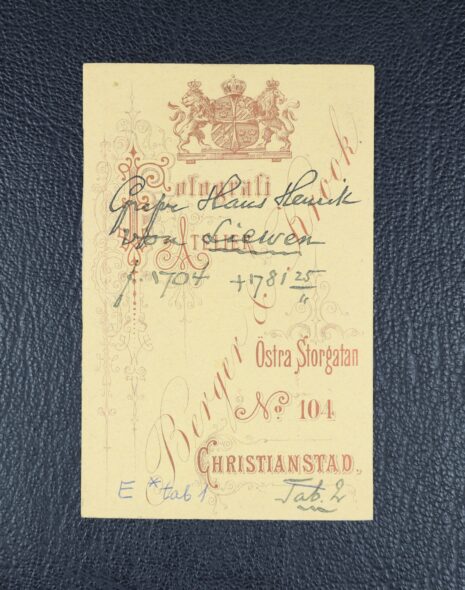 Fotografi
Grefve Hans Henrik
von Liewen
ATELIER
f. 1704 +1781 25/11
Berger & Brook.
Östra Storgatan
No 104
CHRISTIANSTAD.
E * tab 1
Tab. 2